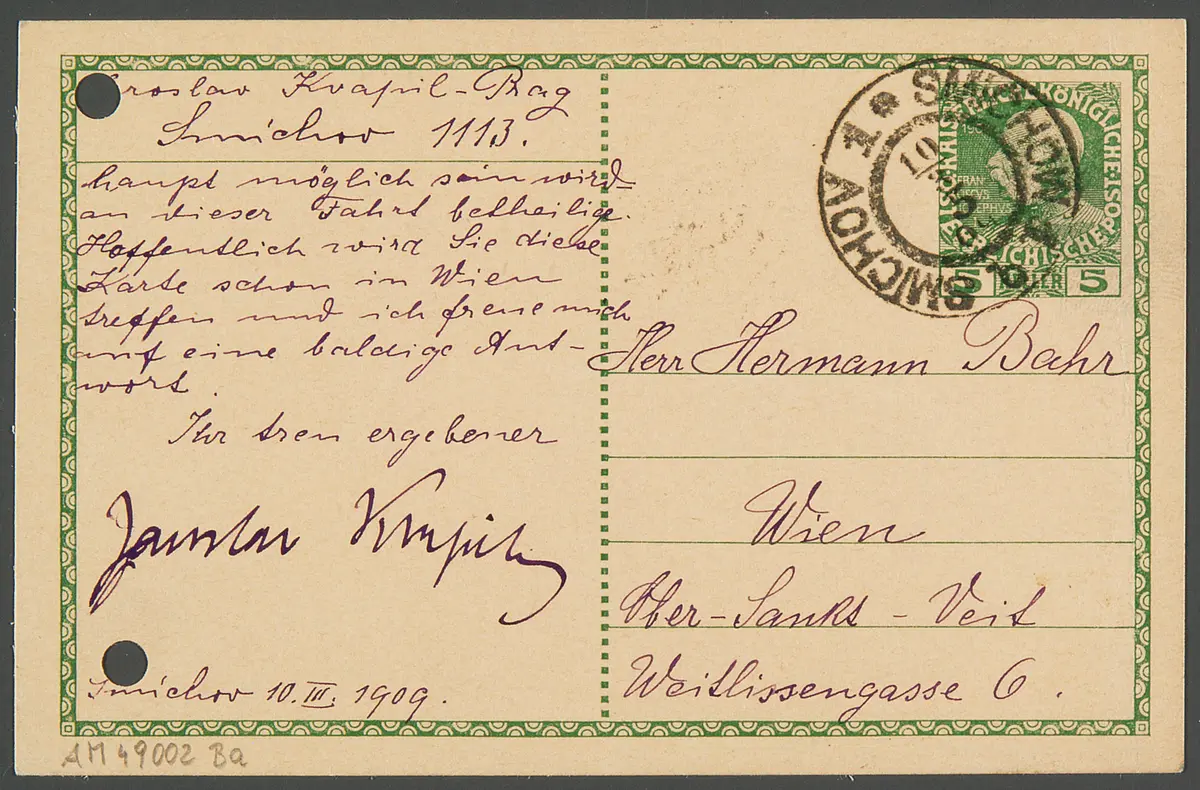 Jaroslav Kvapil-Prag
Smichov 1113.
haupt möglich sein wird
an dieser Fahrt betheilige.
Hoffentlich wird Sie diese
Karte schon in Wien
treffen und ich freue mich
auf eine baldige Ant-
wort.
Ihr treu ergebener
Jaroslav Kvapil
Smichov 10. III. 1909.
AM 49002 Ba
SMICHOW 1 * SMÍCHOV 1 *
5 5
Herr Hermann Bahr
Wien
Ober-Sankt-Veit
Weitlissengasse 6.